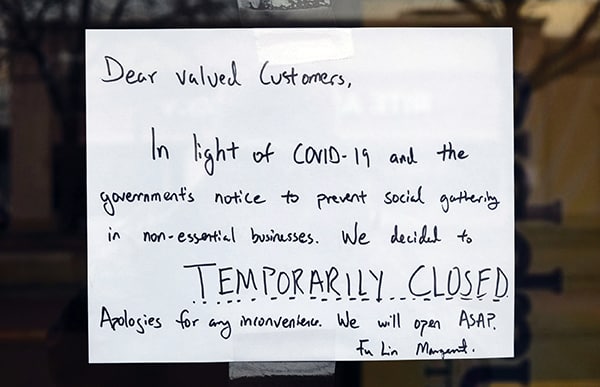 Dear valued Customers,
In light of COVID-19 and the
government's notice to prevent social gathering
in non-essential businesses. We decided to
TEMPORARILY CLOSED
Apologies for any inconvenience. We will open ASAP.
Fu Lin Management.